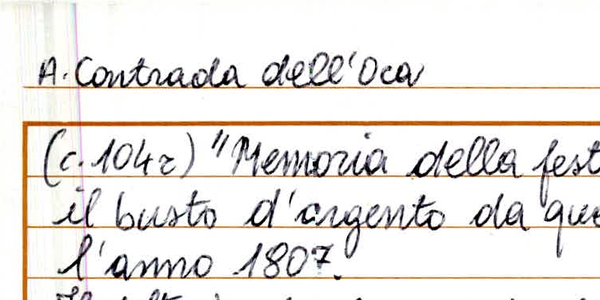 A. Contrada dell'Oca
(c. 104r) "Memoria della fest
il busto d'argento da que
l'anno 1807.